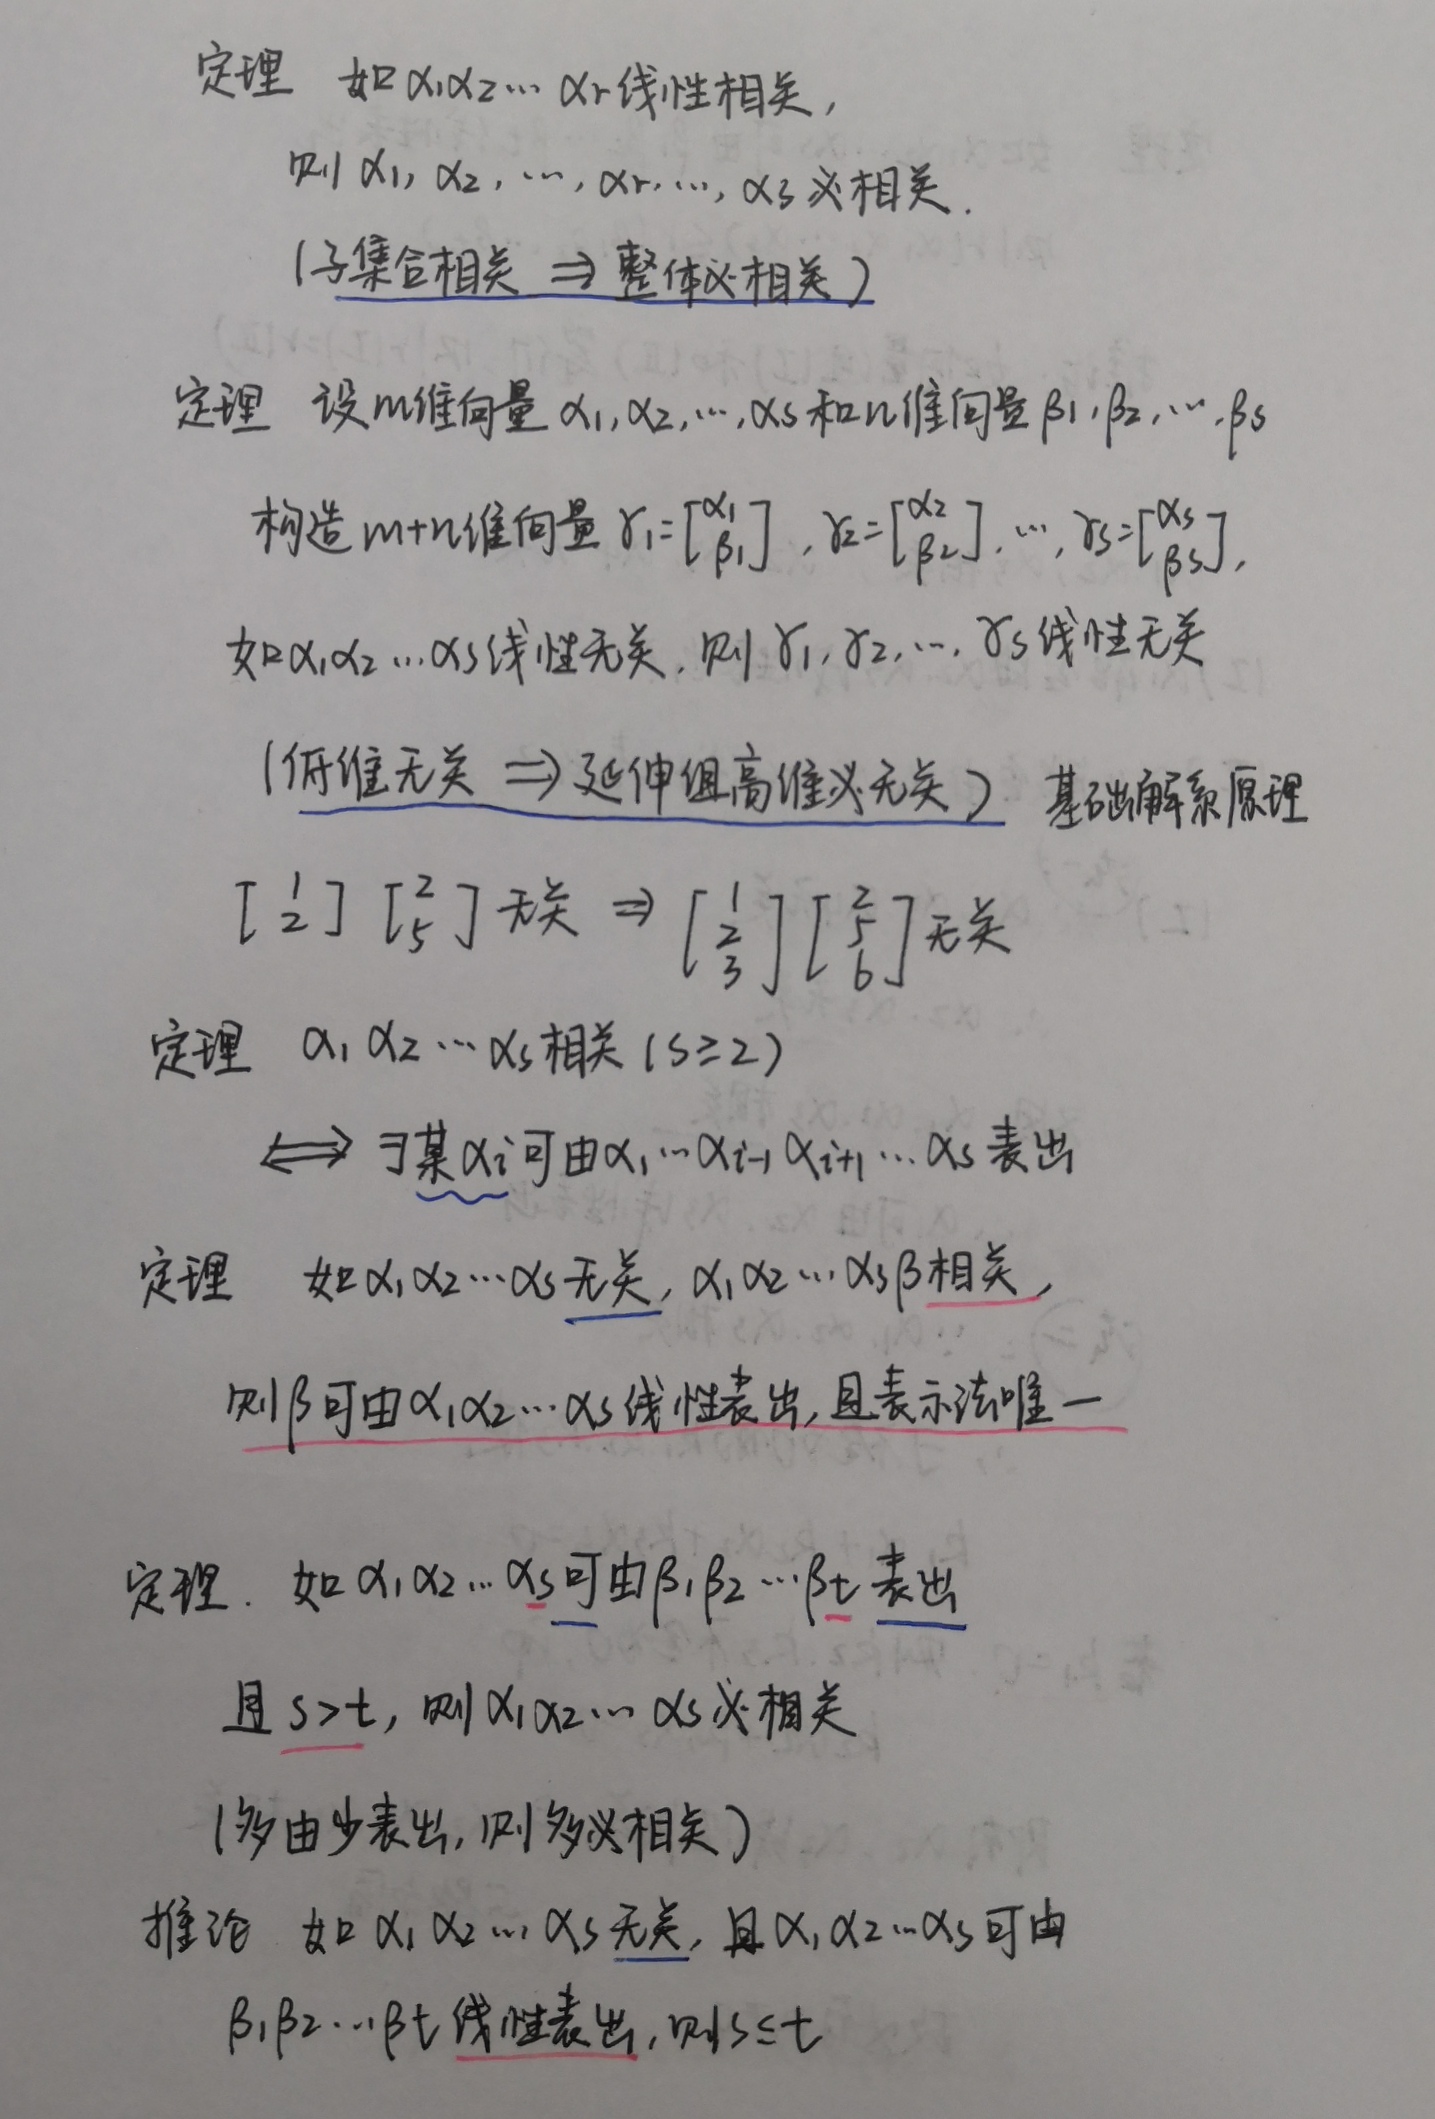 定理 如α₁α₂…αr线性相关,
则α₁, α₂, …, αr, …, αs必相关.
(子集合相关 ⇒ 整体必相关)
定理 设m维向量α₁,α₂,…,αs和n维向量β₁,β₂,…,βs
构造m+n维向量γ₁=[α₁ β₁], γ₂=[α₂ β₂], …, γs=[αs βs],
如α₁α₂…αs线性无关, 则γ₁,γ₂,…,γs线性无关
(低维无关 ⇒ 延伸组高维必无关) 基础解系原理
[1 2] [2 5] 无关 ⇒ [1 2 3] [2 5 6] 无关
定理 α₁ α₂ … αs相关 (s≥2)
⟺ ∃某αi可由α₁…αi-1 αi+1…αs表出
定理 如α₁α₂…αs无关, α₁α₂…αsβ相关,
则β可由α₁α₂…αs线性表出, 且表示法唯一
定理. 如α₁α₂…αs可由β₁β₂…βt表出
且s>t, 则α₁α₂…αs必相关
(多由少表出, 则多必相关)
推论 如α₁α₂…αs无关, 且α₁α₂…αs可由
β₁β₂…βt线性表出, 则s≤t